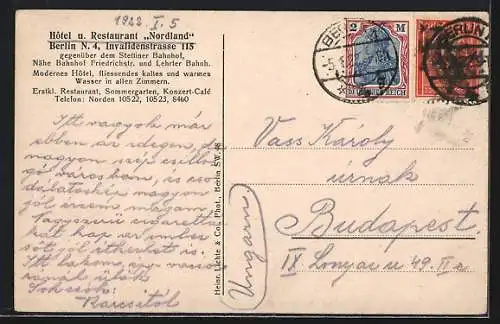 1922 I. 5
Hôtel u. Restaurant „Nordland"
Berlin N. 4, Invalidenstrasse 115
gegenüber dem Stettiner Bahnhof,
Nähe Bahnhof Friedrichstr. und Lehrter Bahnh.
Modernes Hôtel, fliessendes kaltes und warmes
Wasser in allen Zimmern.
Erstkl. Restaurant, Sommergarten, Konzert-Café
Telefon: Norden 10522, 10523, 8460
Itt vagyok már
ebben az idegen, de
nagyon szép csillo-
gó városban, és cso-
dálatoskép nagyon
jól érzem magam.
Nagyszerű cigarettá-
kat kap az ember
sőt jól ehetik is.
Itt lakom,
Heinr. Lichte & Co., Phot., Berlin SW. 48
2 M
BERLIN
BERLIN
Vass Károly
úrnak
Budapest.
IX Lónyai u 49. II
Ungarn